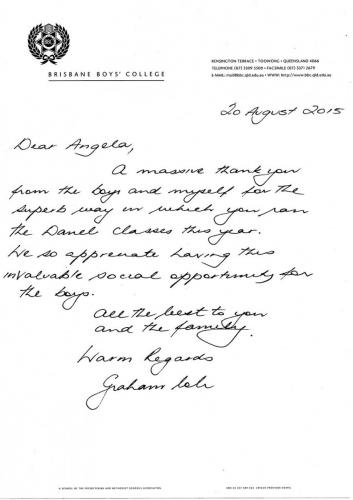 BRISBANE BOYS' COLLEGE
KENSINGTON TERRACE • TOOWONG • QUEENSLAND 4066
TELEPHONE (07) 3309 3500 • FACSIMILE (07) 3371 2679
E-MAIL: mail@bbc.qld.edu.au • WWW: http://www.bbc.qld.edu.au
20 August 2015
Dear Angela,
A massive thank you
from the boys and myself for the
superb way in which you ran
the Dance classes this year.
We so appreciate having this
invaluable social opportunity for
the boys.
All the best to you
and the family.
Warm Regards
Graham
A SCHOOL OF THE PRESBYTERIAN AND METHODIST SCHOOLS ASSOCIATION